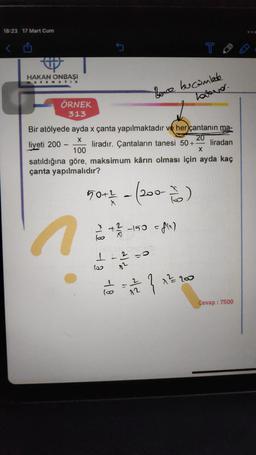 18:23 17 Mart Cum
HAKAN ONBAŞI
MATEMATİK
Bence bu cümlede
hatavar.
ÖRNEK
313
Bir atölyede ayda x çanta yapılmaktadır ve her çantanın ma-
liyeti 200 - x/100 liradır. Çantaların tanesi 50 + 20/x liradan
satıldığına göre, maksimum kârın olması için ayda kaç
çanta yapılmalıdır?
50 + 2/x - (200 - x/100)
x/100 + 2/x - 150 = f(x)
1/100 - 2/x² = 0
1/100 = 2/x² } x² = 200
Cevap : 7500